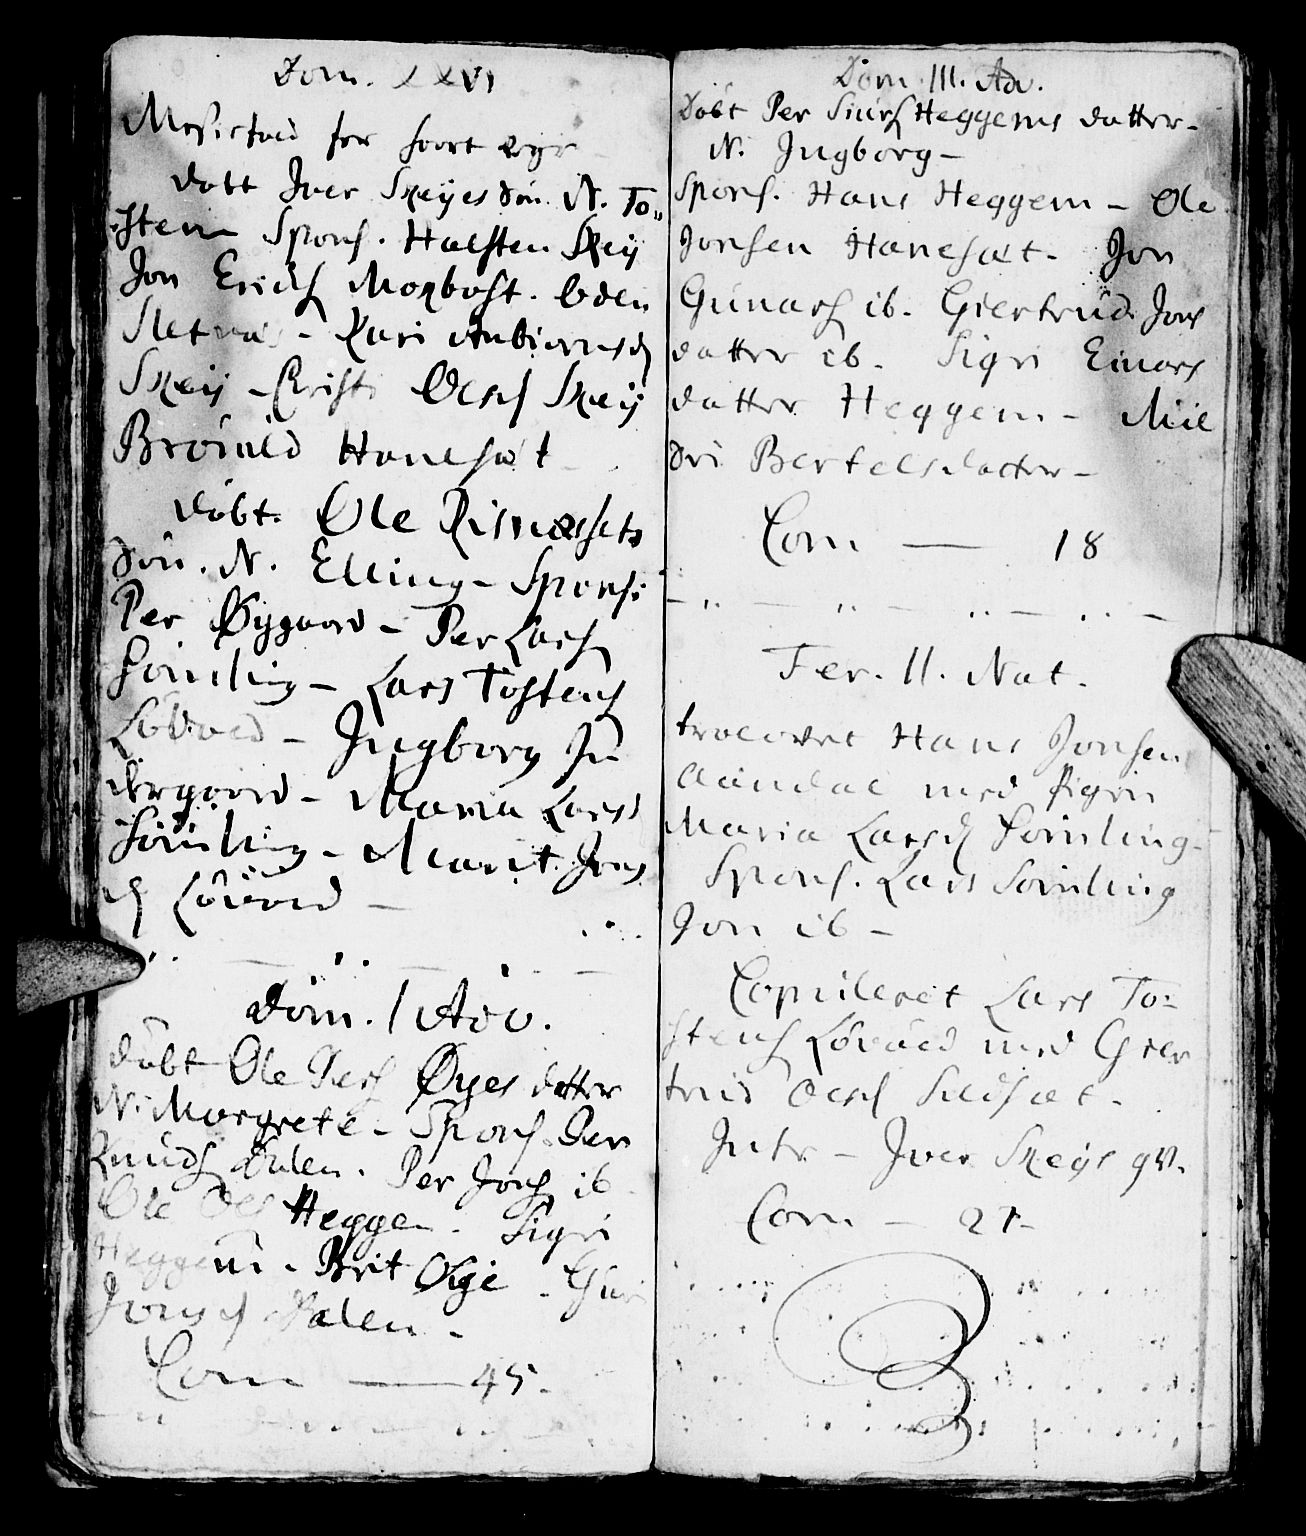 Dom. XXVI
Messefald for stort Veyr
døbt Iver Skeyes Søn N. To=
sten Spons. Halsten Skey
Jon Erichs Moxbost. Eden
Sletnæs - Kari Anbiørnsd
Skeij - Christi Olesd Skeij
Brønild Hanesæt
døbt. Ole Risnæsets
Søn. N. Elling - Spons:
Per Øygaard - Per Lars
Sømling - Lars Tostens
Løvold - Ingborg In
dergaard - Maria Larsd
Sømling - Marit Jons
d Løvold -
Dom. I Adv.
døbt Ole Pers Øyes datter
N. Margrete - Spons. Per
Knuds Dalen. Per Jons ib
Ole Ols Heggem. Sigri
Heggem. Brit Øye - Guri
Jonsd Dalen -
Com — 45.
Dom. III. Adv.
Døbt Per Siurs Heggems datter -
N. Ingborg -
Spons. Hans Heggem - Ole
Jonsen Hanesæt. Jon
Gunars ib. Giertrud Jons
datter ib. Sigri Einars
datter Heggem - Mil
dri Bertelsdatter -
Com — 18
Fer. II. Nat.
trolovet Hans Jonsen
Aandal med Sigri
Maria Larsd Sømling -
Spons. Lars Sømling
Jon ib -
Copuleret Lars To=
stens Løvold med Gier
trud Olesd Sildset.
Intr - Iver Skeys qv.
Com - 27 -